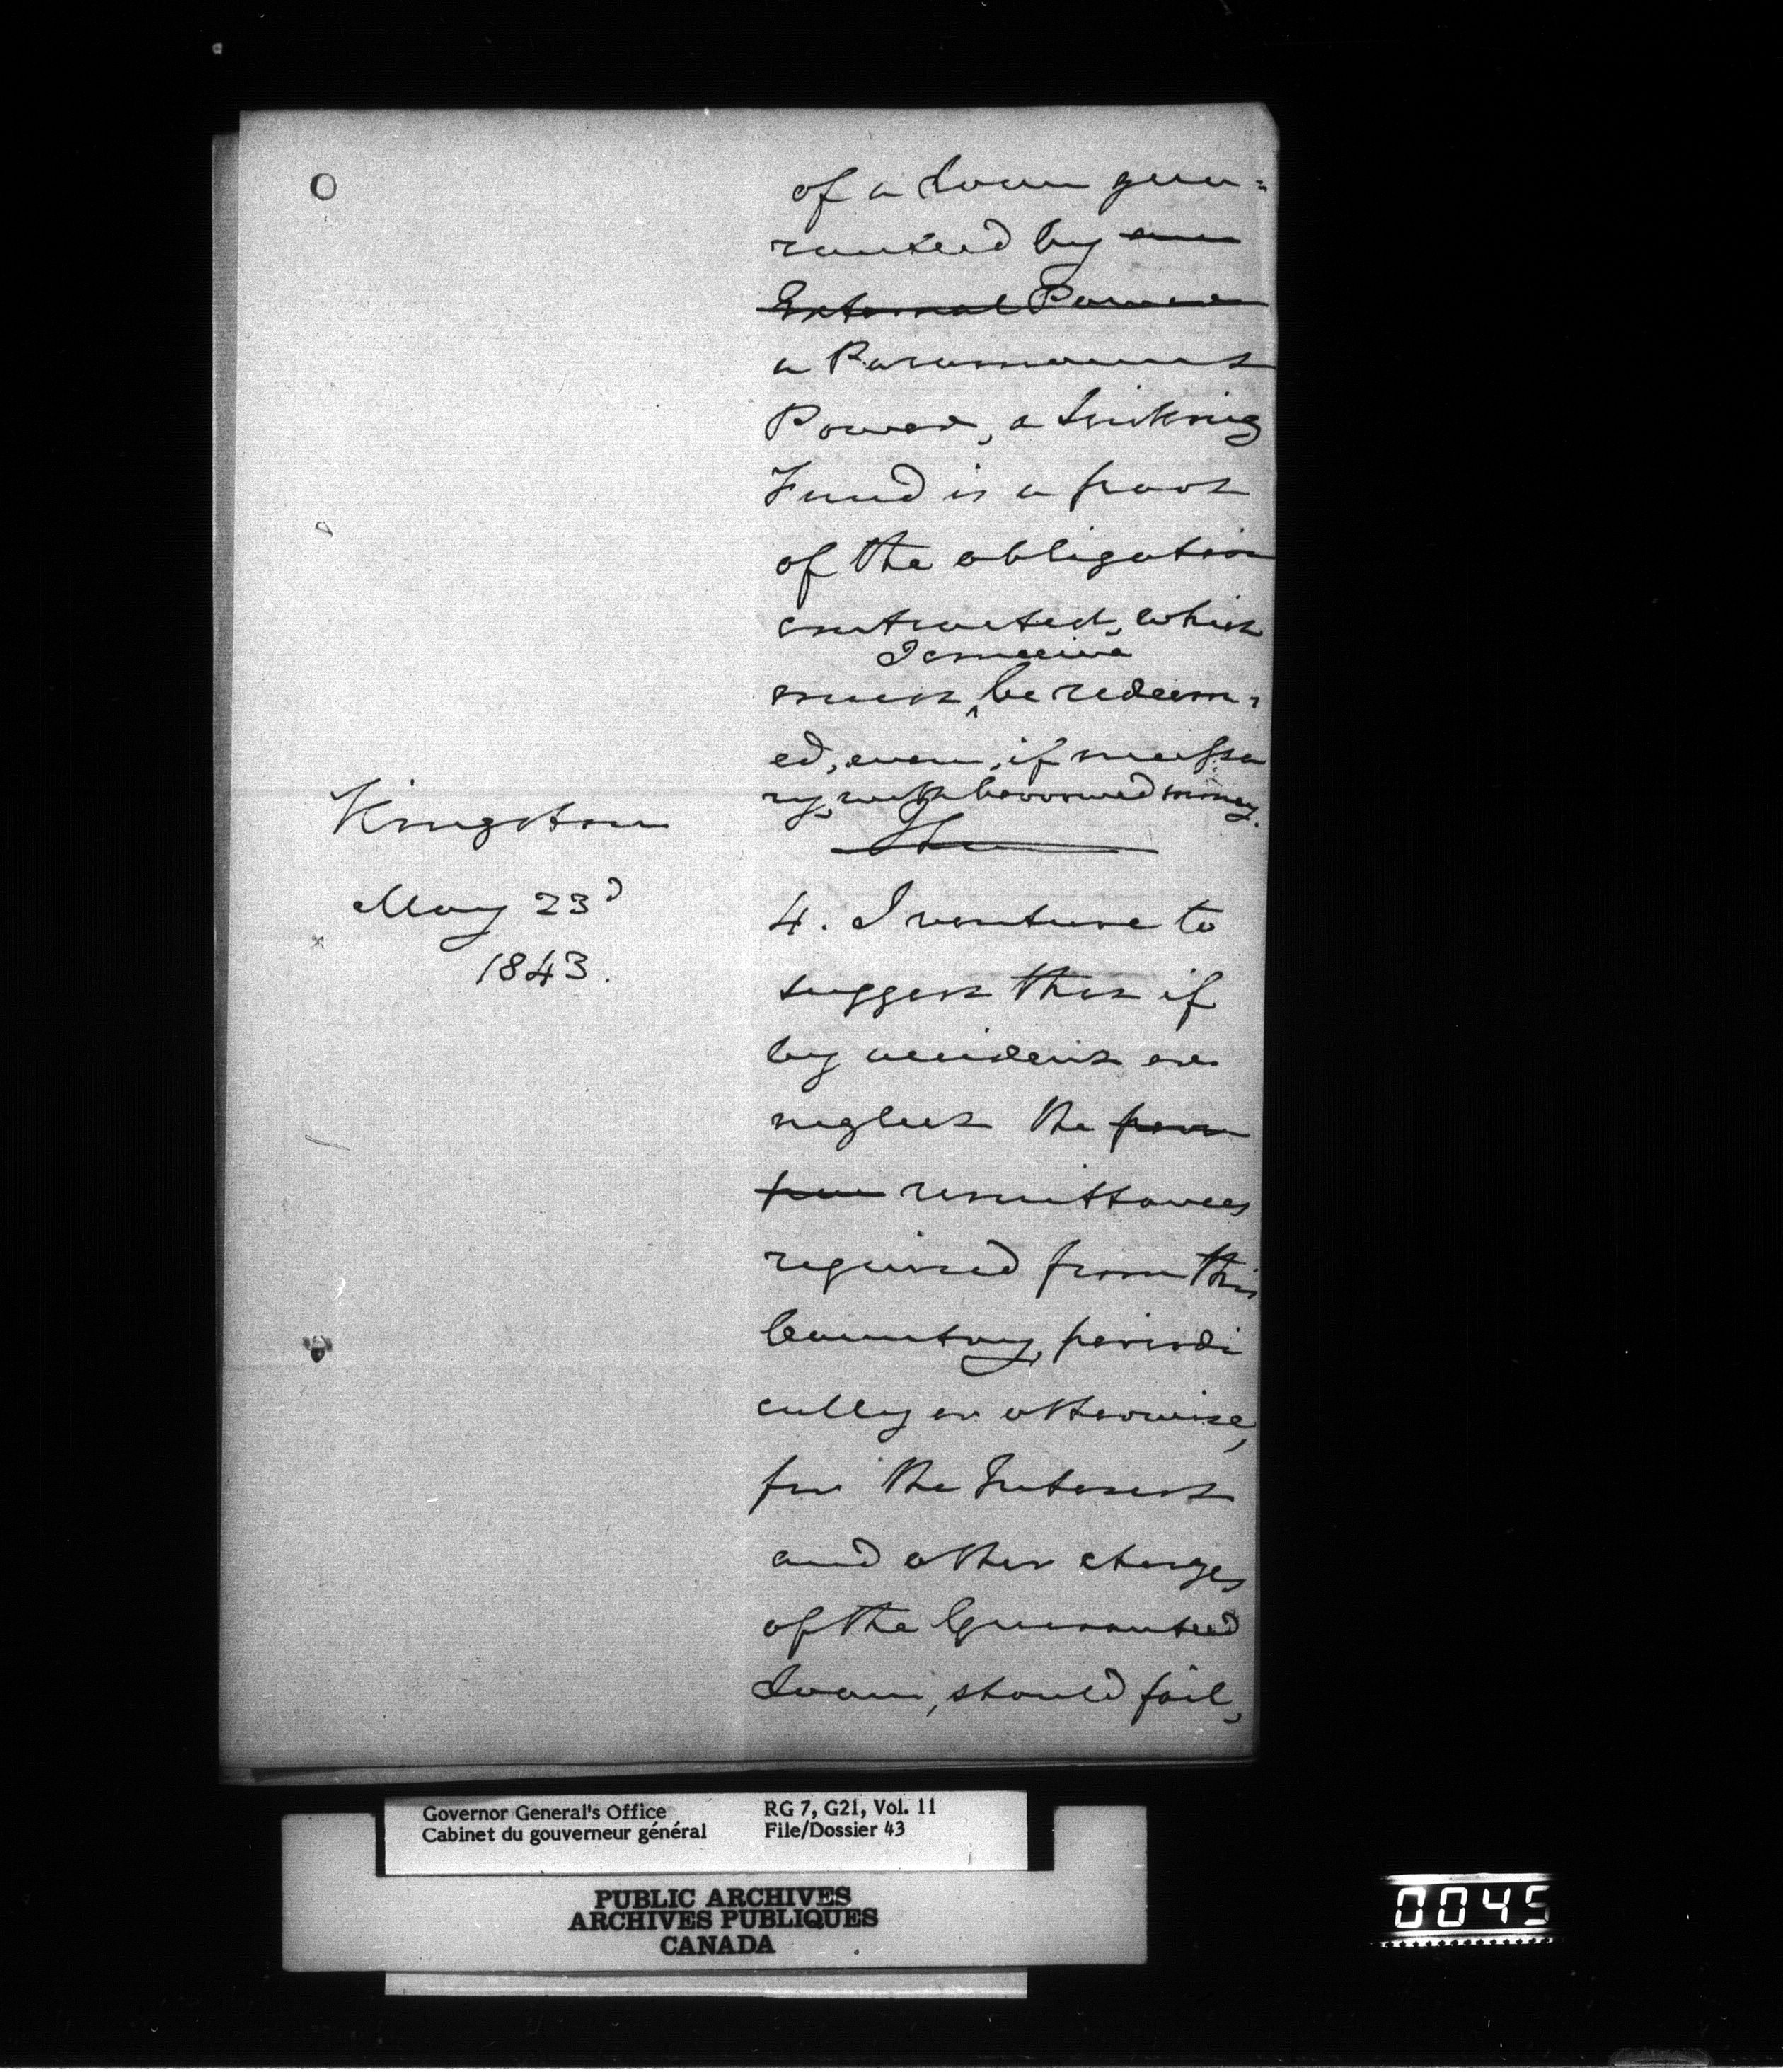 of a Loan gua=
ranteed by an
External Power
a Paramount
Power, a Sinking
Fund is a part
of the obligation
contracted, which
I conceive
must be redeem-
ed, even, if necessa
ry, with borrowed money.
The
Kingston
May 23d
1843.
4. I venture to
suggest that if
by accident or
neglect the
remittances
required from this
Country, periodi
cally or otherwise,
for the Interest
and other charges
of the Guaranteed
Loan, should fail,
Governor General's Office
Cabinet du gouverneur général
RG 7, G21, Vol. 11
File/Dossier 43
PUBLIC ARCHIVES
ARCHIVES PUBLIQUES
CANADA
0045